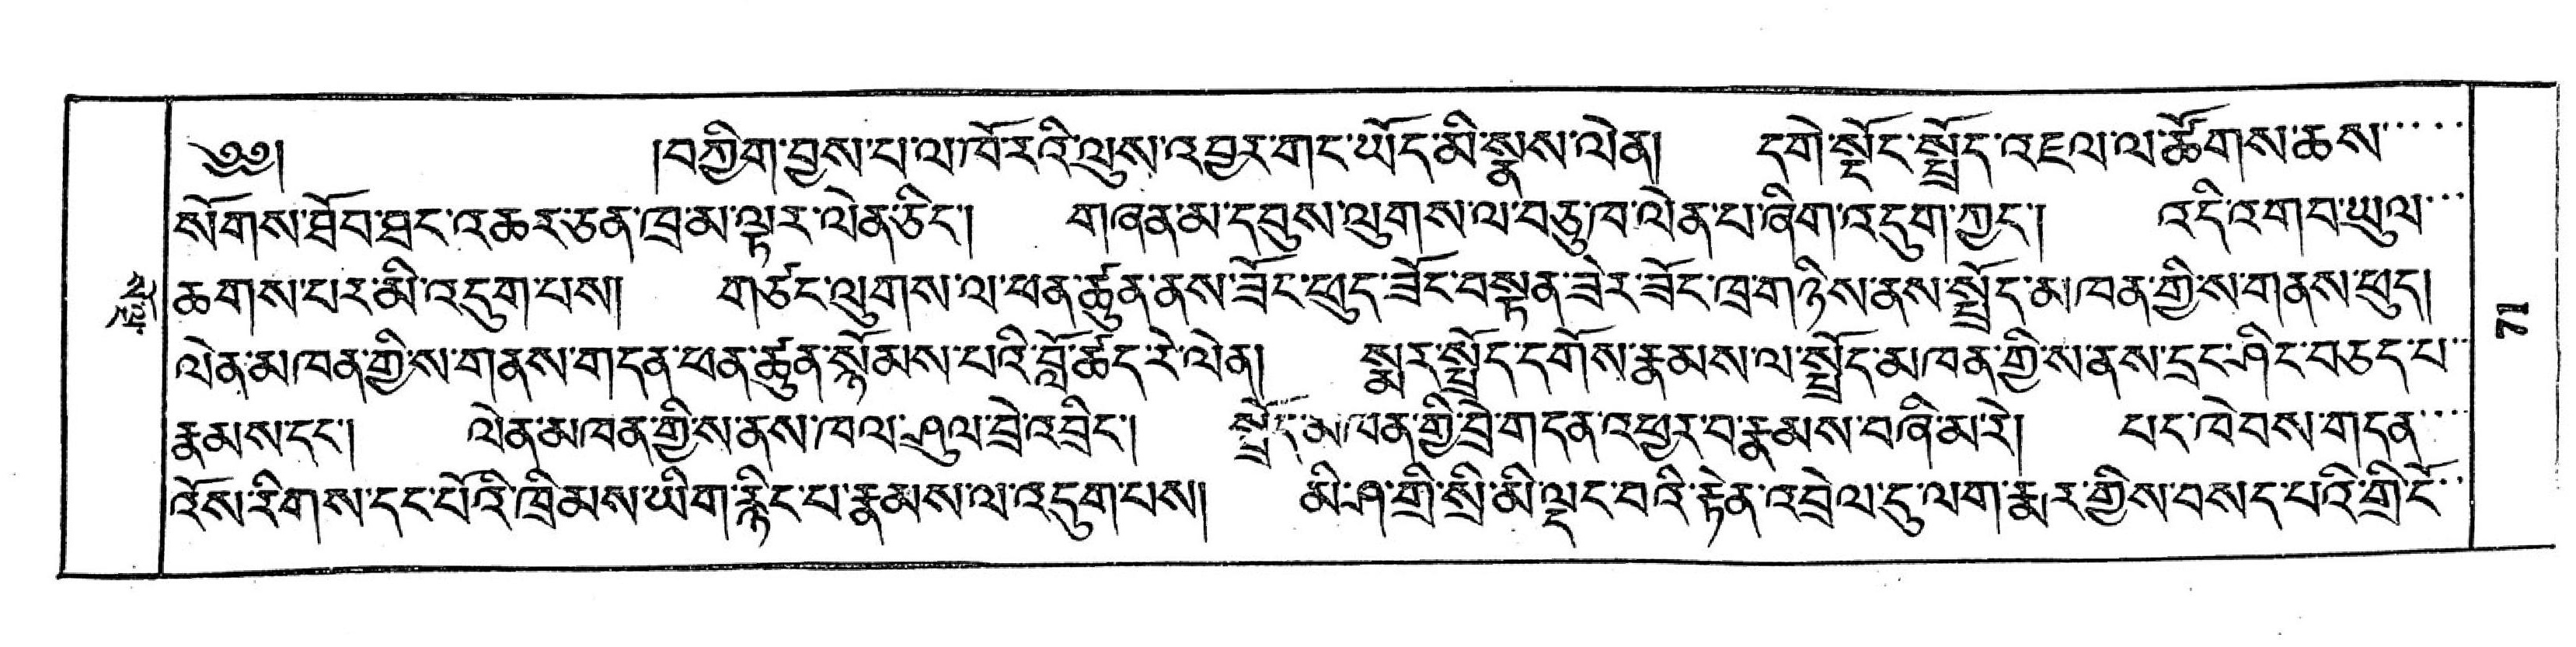 ༄༅། །བཀྱིག་བྱས་པ་ལ་ཁོ་རའི་ལུས་འབྱར་གང་ཡོད་མི་སྣས་ལེན། དགེ་སྡོང་སྤྲོད་འཇལ་ལ་ཚོགས་ཆས་
སོགས་ཐོབ་ཐང་འཆར་ཅན་ཁྲ་མ་ལྟར་ལེན་ཅིང་། གཞན་མ་དབུས་ལུགས་ལ་བཅུ་ཁ་ལེན་པ་ཞིག་འདུག་ཀྱང་། འདི་འགབ་ཡུལ་
ཆགས་པར་མི་འདུག་པས། གཙང་ལུགས་ལ་ཕན་ཚུན་ནས་ཟོང་ཕུད་ཟོང་བསྟན་ཟེར་ཟོང་ཁྲ་གཉིས་ནས་སྤྲོད་མཁན་གྱིས་གནས་ཕུད།
ལེན་མཁན་གྱིས་གནས་གདན་ཕན་ཚུན་སྙོམས་པའི་བློ་ཚོད་རེ་ལེན། སྨར་སྤྲོད་དགོས་རྣམས་ལ་སྤྲོད་མཁན་གྱིས་ནས་དྲང་ཤིང་བཅད་པ་
རྣམས་དང་། ལེན་མཁན་གྱིས་ནས་ཁལ་ཤུལ་བྲེ་འབྲིང་། སྤྲོད་མཁན་གྱི་བྲེ་གདན་འཕྱར་བ་རྣམས་བཞི་མ་རེ། པང་ཁེབས་གདན་
འོས་རིགས་དང་པོའི་ཁྲིམས་ཡིག་རྙིང་པ་རྣམས་ལ་འདུག་པས། མི་ཤ་གྲི་སྲི་མི་ལྡང་བའི་རྟེན་འབྲེལ་དུ་ལག་རྨར་གྱིས་བསད་པའི་གྲི་ངོ་